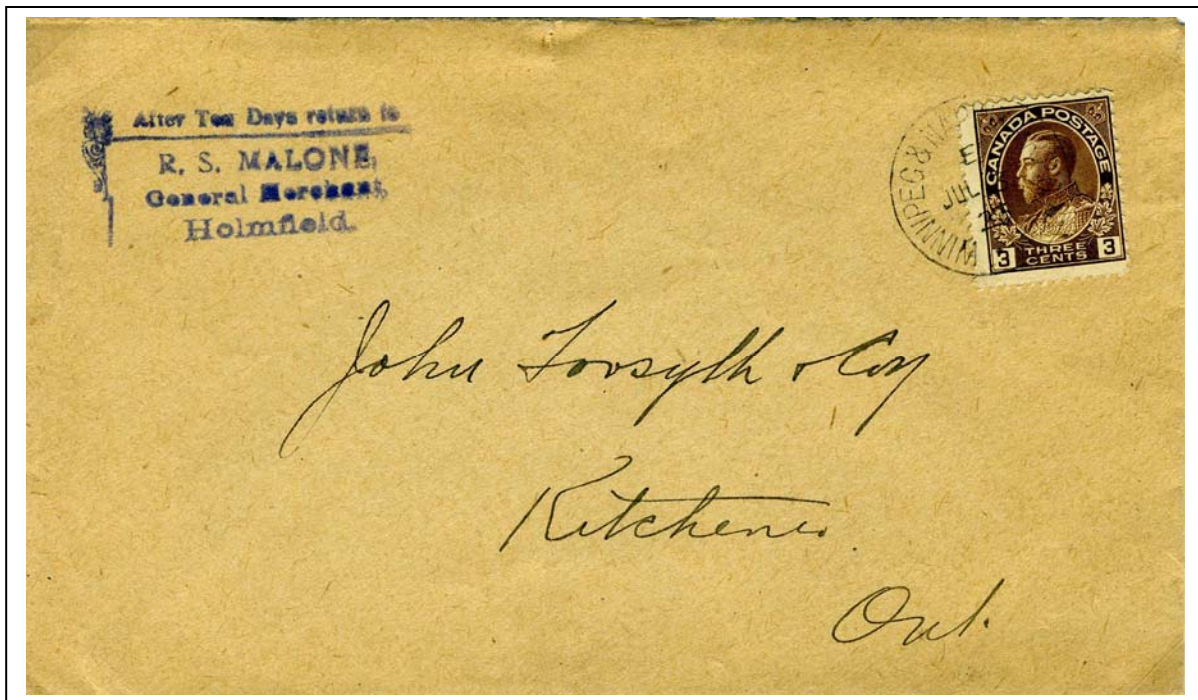 After Ten Days return to
R. S. MALONE,
General Merchant,
Holmfield.
WINNIPEG &
E
JUL
CANADA POSTAGE
3 THREE CENTS 3
John Forsyth & Coy
Kitchener
Ont.